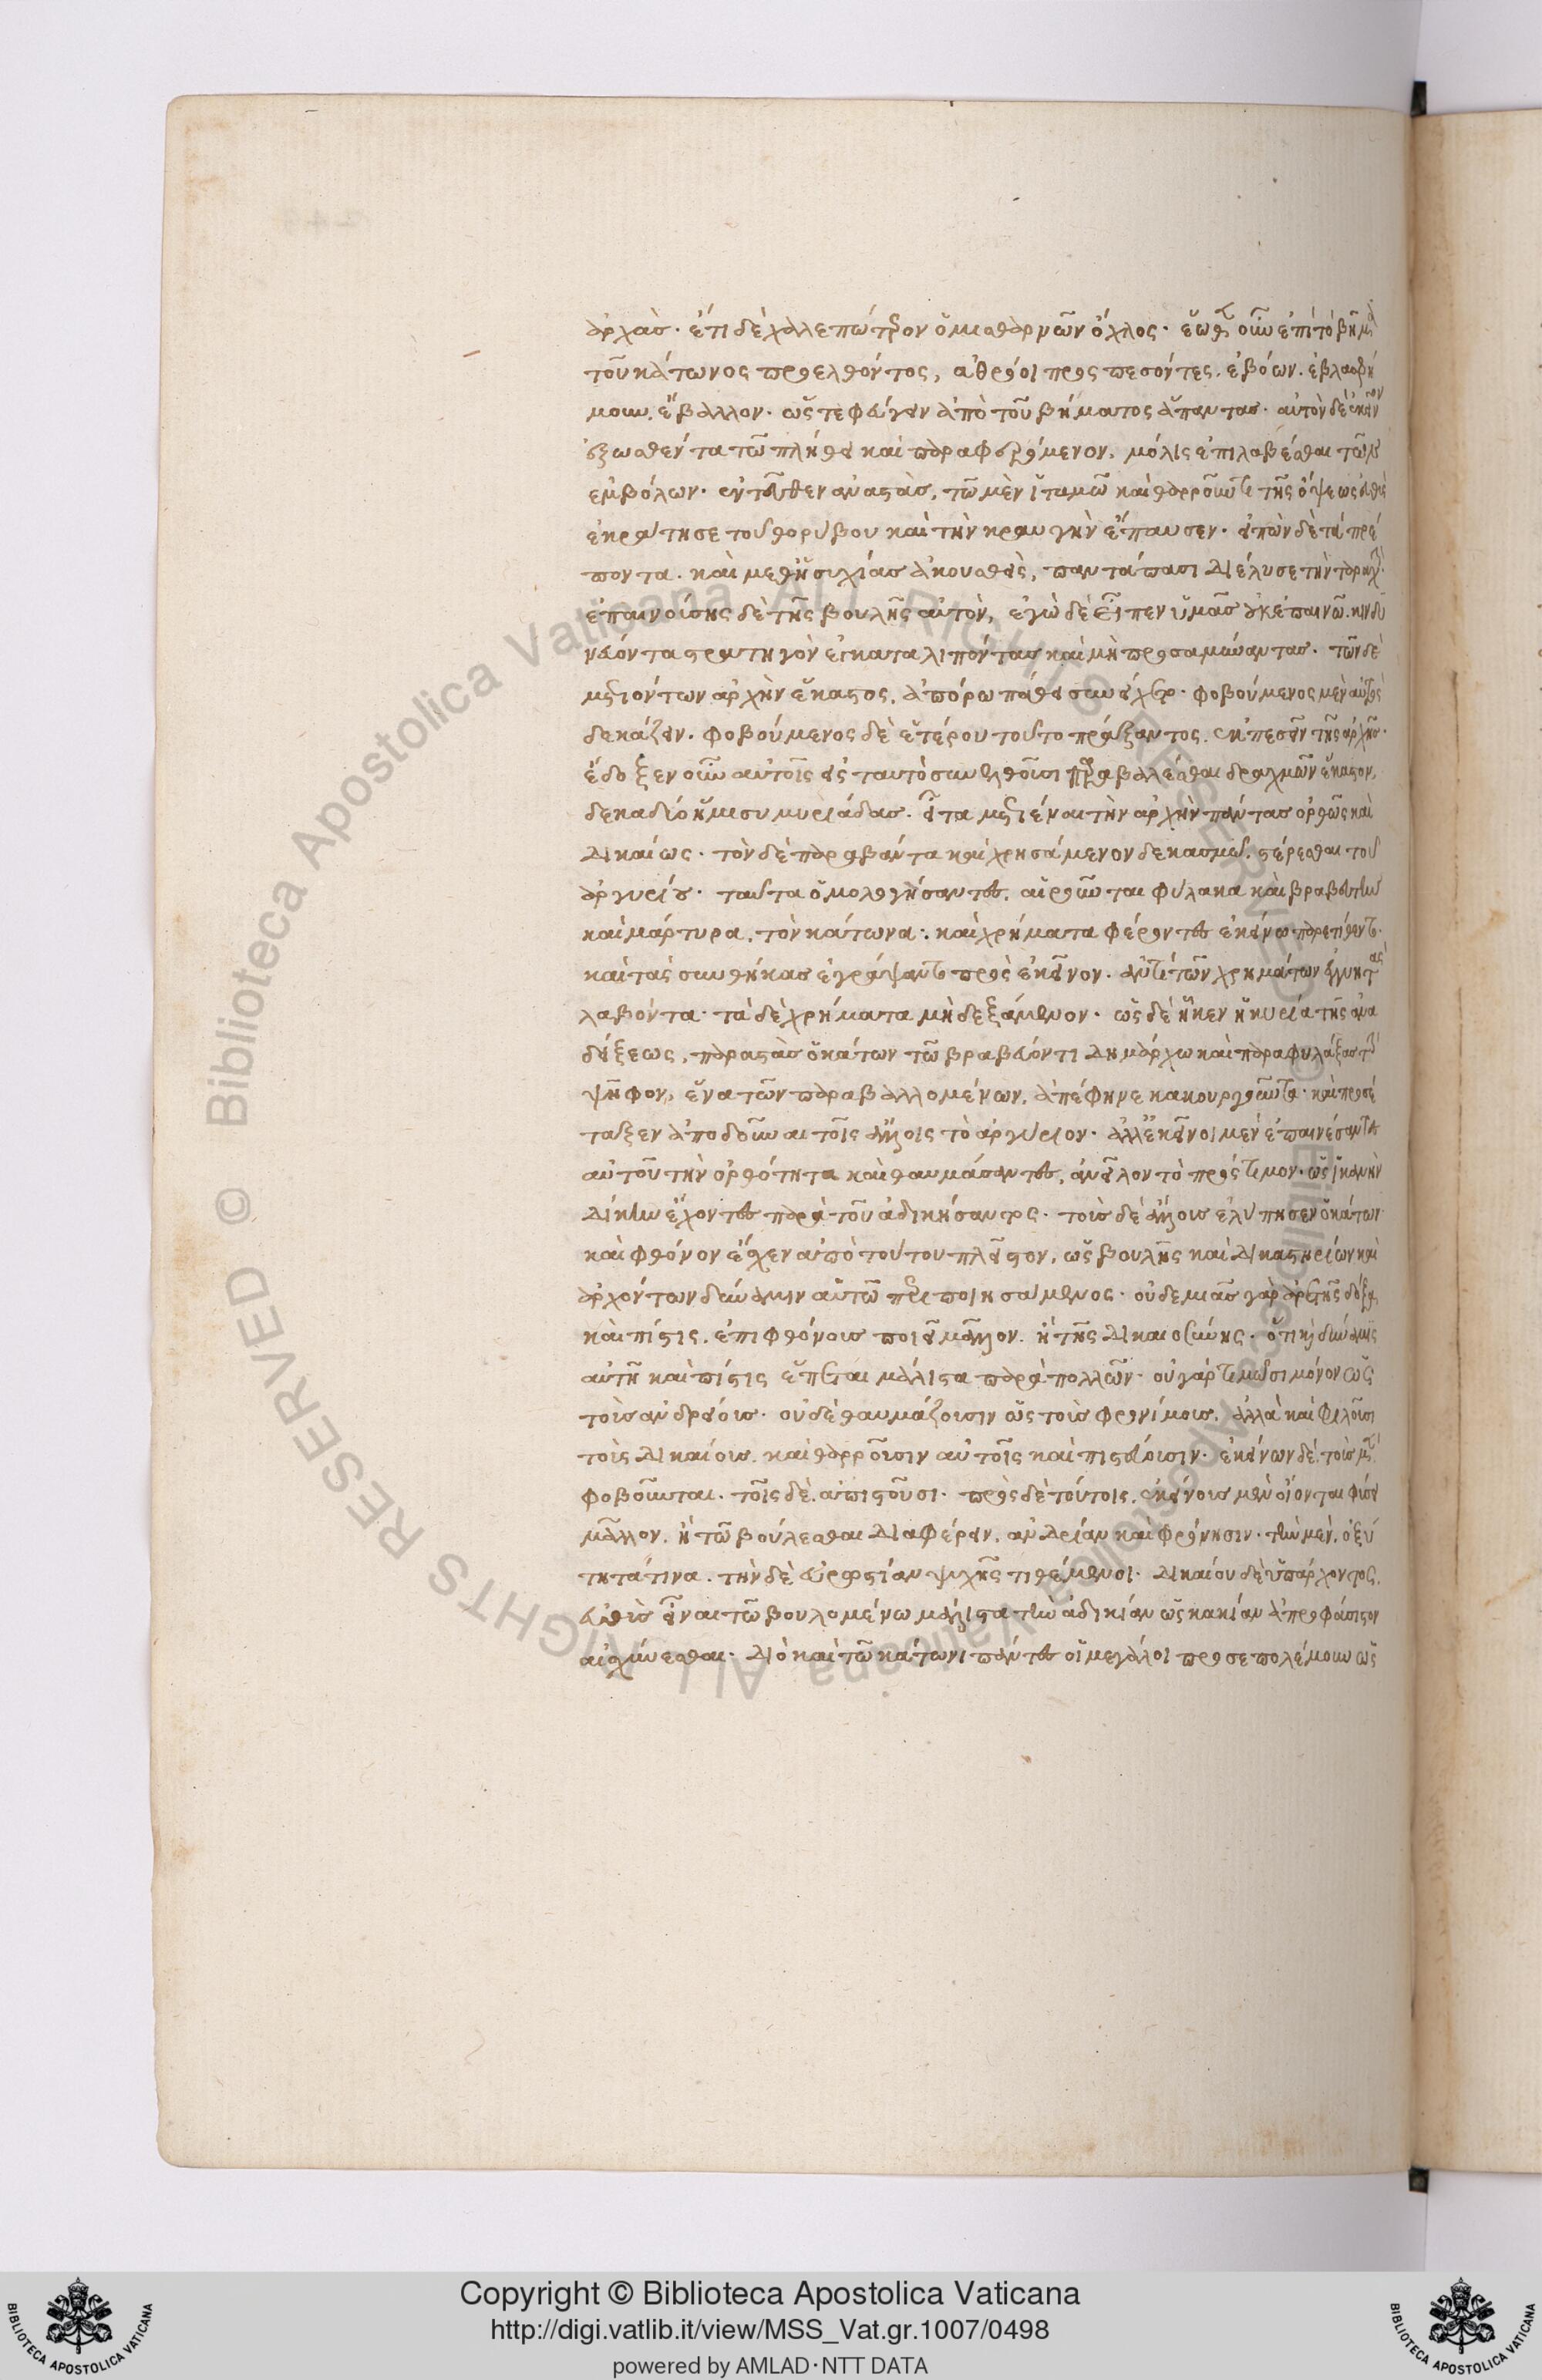 ἀρχὰς· ἔτι δὲ χαλεπώτερον ὁ μισθαρνῶν ὄχλος· ἕωθεν οὖν ἐπὶ τὸ βῆμα
τοῦ κάτωνος προελθόντος, ἀθρόοι προσπεσόντες. ἐβόων. ἐβλασφή
μουν. ἔβαλλον· ὥστε φεύγειν ἀπὸ τοῦ βήματος ἅπαντας· αὐτὸν δὲ ἐκεῖνον
ἐξωσθέντα τῶ πλήθει καὶ παραφερόμενον, μόλις ἐπιλαβέσθαι τῶν
ἐμβόλων· ἐντεῦθεν ἀναστὰς, τῶ μὲν ἰταμῶ καὶ θαρροῦντι τῆς ὄψεως εὐθὺς
ἐκράτησε τοῦ θορύβου καὶ τὴν κραυγὴν ἔπαυσεν· εἰπὼν δὲ τὰ πρέ
ποντα. καὶ μεθ' ἡσυχίας ἀκουσθεὶς, παντάπασι διέλυσε τὴν ταραχήν·
ἐπαινούσης δὲ τῆς βουλῆς αὐτὸν, ἐγὼ δὲ εἶπεν ὑμᾶς οὐκ ἐπαινῶ. κινδυ
νεύοντα στρατηγὸν ἐγκαταλιπόντας καὶ μὴ προσαμύναντας. τῶν δὲ
μετιόντων ἀρχὴν ἕκαστος, ἀπόρω πάθει συνείχετο· φοβούμενος μὲν αὐτὸς
δεκάζειν. φοβούμενος δὲ ἑτέρου τοῦτο πράξαντος, ἐκπεσεῖν τῆς ἀρχῆς·
ἔδοξεν οὖν αὐτοῖς εἰς ταυτὸ συνελθοῦσι παραβαλέσθαι δραχμῶν ἕκαστον,
δεκαδύο ἥμισυ μυριάδας. εἶτα μετιέναι τὴν ἀρχὴν πάντας ὀρθῶς καὶ
δικαίως· τὸν δὲ παραβάντα καὶ χρησάμενον δεκασμῶ. στέρεσθαι τοῦ
ἀργυρίου· ταῦτα ὁμολογήσαντες. αἱροῦνται φύλακα καὶ βραβευτὴν
καὶ μάρτυρα, τὸν κάτωνα· καὶ χρήματα φέροντες ἐκείνω παρετίθεντο·
καὶ τὰς συνθήκας ἐγράψαντο πρὸς ἐκεῖνον. ἀντὶ τῶν χρημάτων ἐγγυητὰς
λαβόντα· τὰ δὲ χρήματα μὴ δεξάμενον. ὡς δὲ ἧκεν ἡ κυρία τῆς ἀνα
δείξεως, παραστὰς ὁ κάτων τῶ βραβεύοντι δημάρχω καὶ παραφυλάξας τὴν
ψῆφον, ἕνα τῶν παραβαλλομένων, ἀπέφηνε κακουργοῦντα· καὶ προσέ
ταξεν ἀποδοῦναι τοῖς ἄλλοις τὸ ἀργύριον· ἀλλ' ἐκεῖνοι μὲν ἐπαινέσαντες
αὐτοῦ τὴν ὀρθότητα καὶ θαυμάσαντες, ἀνεῖλον τὸ πρόστιμον· ὡς ἱκανὴν
δίκην ἔχοντες παρὰ τοῦ ἀδικήσαντος· τοὺς δὲ ἄλλους ἐλύπησεν ὁ κάτων
καὶ φθόνον ἔσχεν ἀπὸ τούτου πλεῖστον, ὡς βουλῆς καὶ δικαστηρίων καὶ
ἀρχόντων δύναμιν αὑτῶ περιποιησάμενος· οὐδεμιᾶς γὰρ ἀρετῆς δόξα
καὶ πίστις. ἐπιφθόνους ποιεῖ μᾶλλον. ἢ τῆς δικαιοσύνης· ὅτι καὶ δύναμις
αὐτῆ καὶ πίστις ἕπεται μάλιστα παρὰ πολλῶν· οὐ γὰρ τιμῶσι μόνον ὡς
τοὺς ἀνδρείους· οὐδὲ θαυμάζουσιν ὡς τοὺς φρονίμους. ἀλλὰ καὶ φιλοῦσι
τοὺς δικαίους. καὶ θαρροῦσιν αὐτοῖς καὶ πιστεύουσιν· ἐκείνων δὲ, τοὺς μὲν
φοβοῦνται. τοῖς δὲ ἀπιστοῦσι· πρὸς δὲ τούτοις, ἐκείνους μὲν οἴονται φύσει
μᾶλλον. ἢ τῶ βούλεσθαι διαφέρειν. ἀνδρίαν καὶ φρόνησιν· τὴν μὲν, ὀξύ
τητά τινα. τὴν δὲ εὐρωστίαν ψυχῆς τιθέμενοι· δικαίου δὲ ὑπάρχοντος,
εὐθὺς εἶναι τῶ βουλομένω μάλιστα τὴν ἀδικίαν ὡς κακίαν ἀπροφάσιστον
αἰσχύνεσθαι· διὸ καὶ τῶ κάτωνι πάντες οἱ μεγάλοι προσεπολέμουν ὡς
Copyright © Biblioteca Apostolica Vaticana
http://digi.vatlib.it/view/MSS_Vat.gr.1007/0498
powered by AMLAD·NTT DATA
BIBLIOTECA APOSTOLICA VATICANA
BIBLIOTECA APOSTOLICA VATICANA
© Biblioteca Apostolica Vaticana ALL RIGHTS RESERVED
© Biblioteca Apostolica Vaticana ALL RIGHTS RESERVED